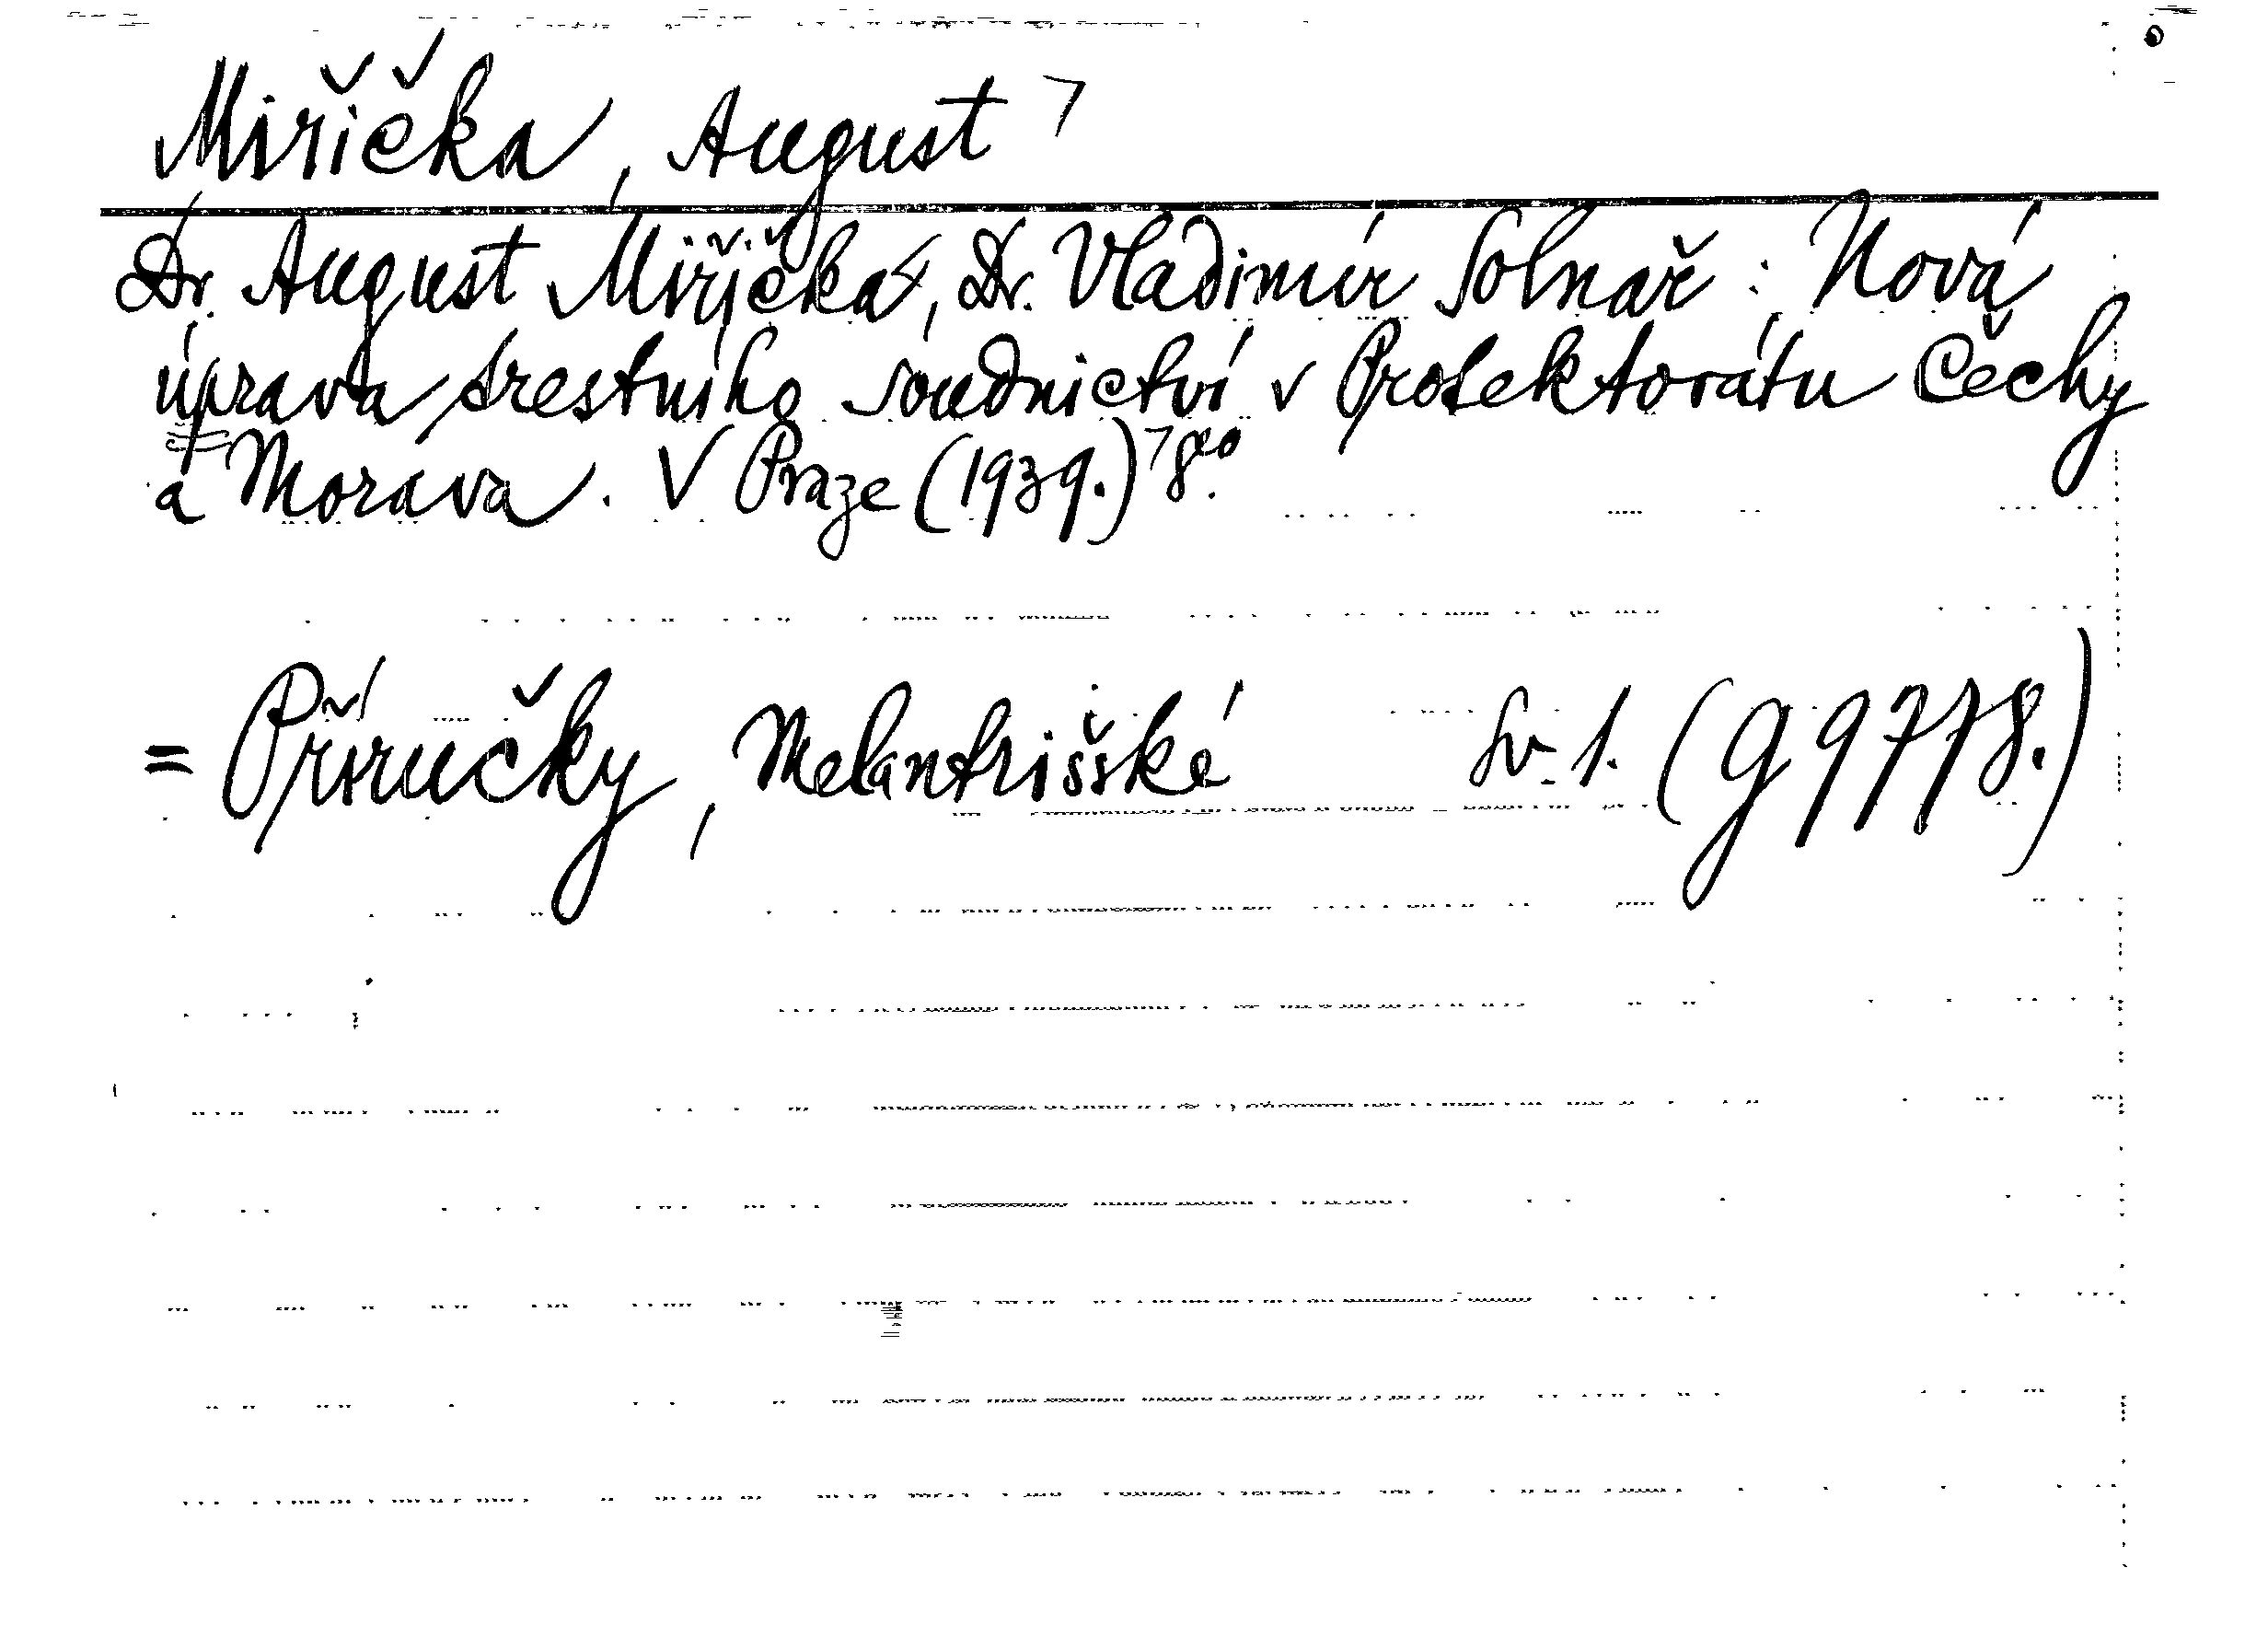 Miřička, August
Dr. August Miřička, Dr. Vladimír Solnař: Nová
úprava trestního soudnictví v Protektorátu Čechy
a Morava. V Praze (1939.) 8°.
= Příručky, Melantrišské Sv. 1. (G 9778.)